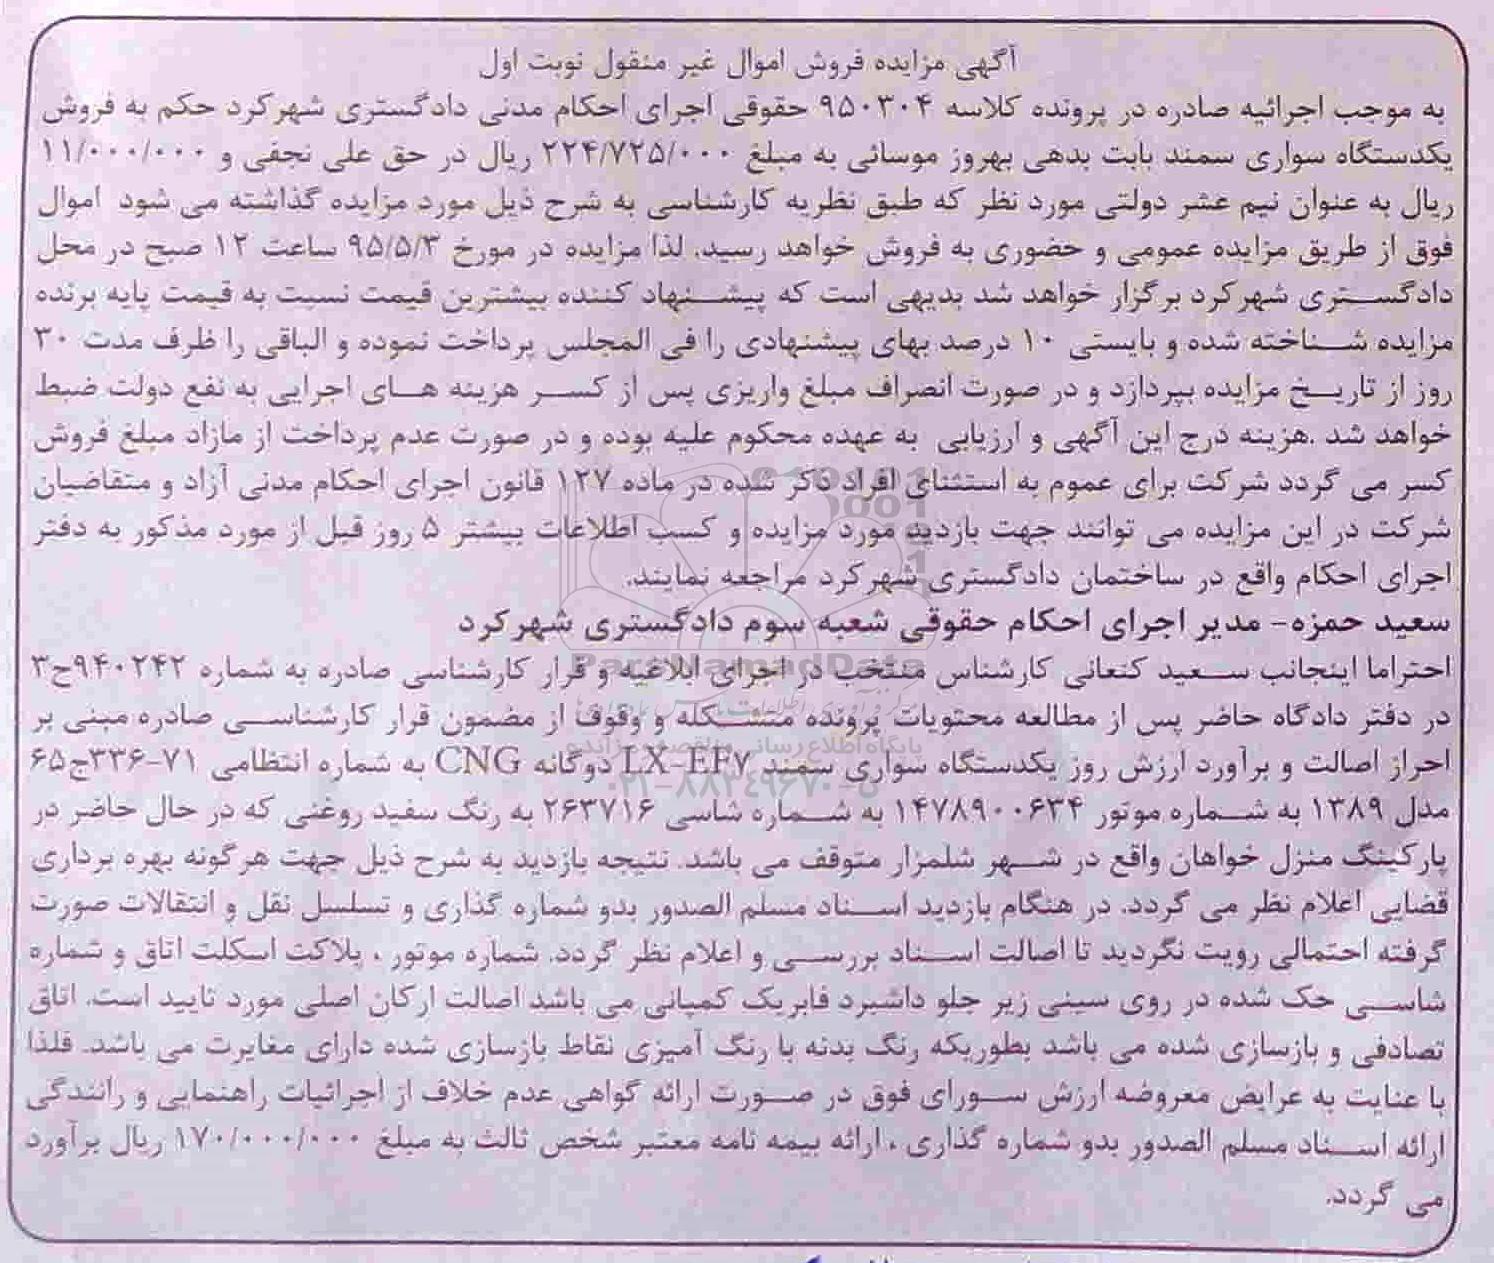 آگهی مزایده فروش اموال غیر منقول نوبت اول
به موجب اجرائیه صادره در پرونده کلاسه ۹۵۰۳۰۴ حقوقی اجرای احکام مدنی دادگستری شهرکرد حکم به فروش
یکدستگاه سواری سمند بابت بدهی بهروز موسائی به مبلغ ۲۲۴/۷۲۵/۰۰۰ ریال در حق علی نجفی و ۱۱/۰۰۰/۰۰۰
ریال به عنوان نیم عشر دولتی مورد نظر که طبق نظریه کارشناسی به شرح ذیل مورد مزایده گذاشته می شود اموال
فوق از طریق مزایده عمومی و حضوری به فروش خواهد رسید. لذا مزایده در مورخ ۹۵/۵/۳ ساعت ۱۲ صبح در محل
دادگستری شهرکرد برگزار خواهد شد بدیهی است که پیشنهاد کننده بیشترین قیمت نسبت به قیمت پایه برنده
مزایده شناخته شده و بایستی ۱۰ درصد بهای پیشنهادی را فی المجلس پرداخت نموده و الباقی را ظرف مدت ۳۰
روز از تاریخ مزایده بپردازد و در صورت انصراف مبلغ واریزی پس از کسر هزینه های اجرایی به نفع دولت ضبط
خواهد شد .هزینه درج این آگهی و ارزیابی به عهده محکوم علیه بوده و در صورت عدم پرداخت از مازاد مبلغ فروش
کسر می گردد شرکت برای عموم به استثنای افراد ذکر شده در ماده ۱۲۷ قانون اجرای احکام مدنی آزاد و متقاضیان
شرکت در این مزایده می توانند جهت بازدید مورد مزایده و کسب اطلاعات بیشتر ۵ روز قبل از مورد مذکور به دفتر
اجرای احکام واقع در ساختمان دادگستری شهرکرد مراجعه نمایند.
سعید حمزه- مدیر اجرای احکام حقوقی شعبه سوم دادگستری شهرکرد
احتراما اینجانب سعید کنعانی کارشناس منتخب در اجرای ابلاغیه و قرار کارشناسی صادره به شماره ۹۴۰۲۴۲ح۳
در دفتر دادگاه حاضر پس از مطالعه محتویات پرونده متشکله و وقوف از مضمون قرار کارشناسی صادره مبنی بر
احراز اصالت و برآورد ارزش روز یکدستگاه سواری سمند LX-EF۷ دوگانه CNG به شماره انتظامی ۷۱-۳۳۶ج۶۵
مدل ۱۳۸۹ به شماره موتور ۱۴۷۸۹۰۰۶۳۴ به شماره شاسی ۲۶۳۷۱۶ به رنگ سفید روغنی که در حال حاضر در
پارکینگ منزل خواهان واقع در شهر شلمزار متوقف می باشد. نتیجه بازدید به شرح ذیل جهت هرگونه بهره برداری
قضایی اعلام نظر می گردد. در هنگام بازدید اسناد مسلم الصدور بدو شماره گذاری و تسلسل نقل و انتقالات صورت
گرفته احتمالی رویت نگردید تا اصالت اسناد بررسی و اعلام نظر گردد. شماره موتور ، پلاکت اسکلت اتاق و شماره
شاسی حک شده در روی سینی زیر جلو داشبرد فابریک کمپانی می باشد اصالت ارکان اصلی مورد تایید است. اتاق
تصادفی و بازسازی شده می باشد بطوریکه رنگ بدنه با رنگ آمیزی نقاط بازسازی شده دارای مغایرت می باشد. فلذا
با عنایت به عرایض معروضه ارزش سورای فوق در صورت ارائه گواهی عدم خلاف از اجرائیات راهنمایی و رانندگی
ارائه اسناد مسلم الصدور بدو شماره گذاری ، ارائه بیمه نامه معتبر شخص ثالث به مبلغ ۱۷۰/۰۰۰/۰۰۰ ریال برآورد
می گردد.
ParsNamadData
پایگاه اطلاع رسانی مناقصه و مزایده
۰۲۱-۸۸۳۴۹۶۷۰-۵